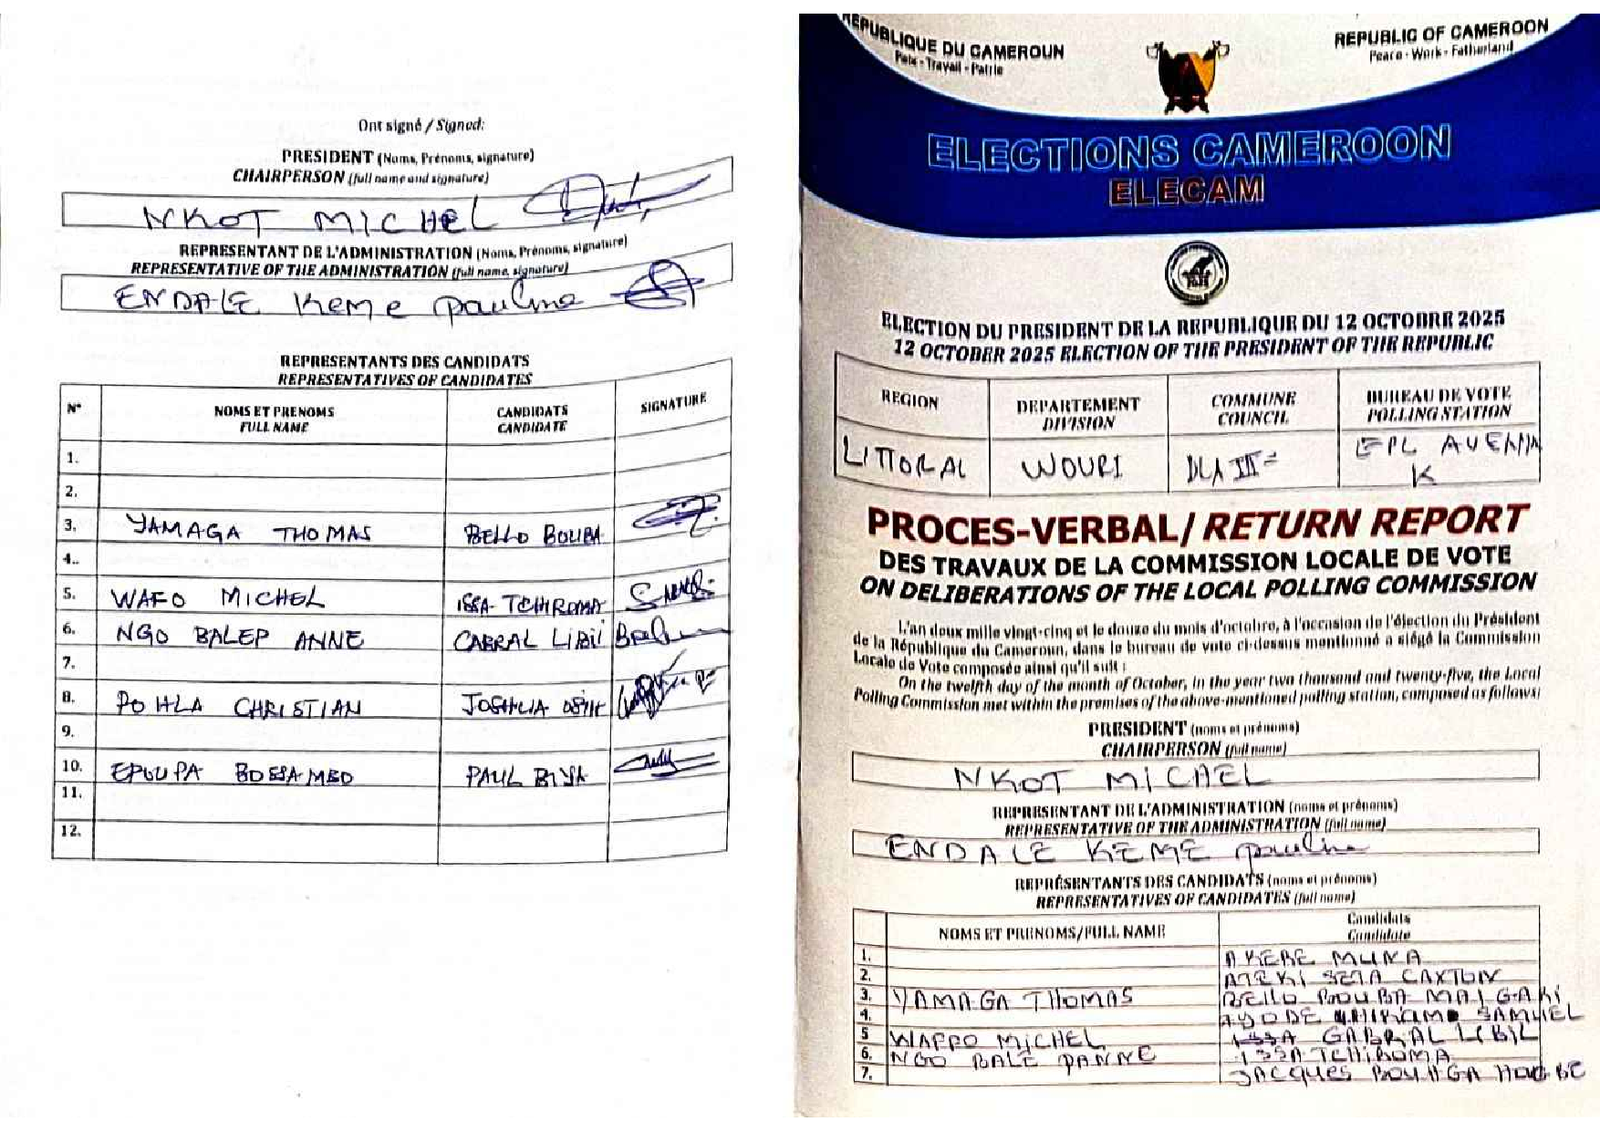 Ont signé / Signed:
PRESIDENT (Noms, Prénoms, signature)
CHAIRPERSON (full name and signature)
NKOT MICHEL
REPRESENTANT DE L'ADMINISTRATION (Noms, Prénoms, signature)
REPRESENTATIVE OF THE ADMINISTRATION (full name, signature)
ENDALE KEME pauline
REPRESENTANTS DES CANDIDATS
REPRESENTATIVES OF CANDIDATES
N° NOMS ET PRENOMS FULL NAME CANDIDATS CANDIDATE SIGNATURE
1.
2.
3. YAMAGA THOMAS BELLO BOUBA
4..
5. WAFO MICHEL ISSA TCHIROMA
6. NGO BALEP ANNE CABRAL LIBII
7.
8. POHLA CHRISTIAN JOSHUA OSIH
9.
10. EPOUPA BOSSAMBO PAUL BIYA
11.
12.
REPUBLIQUE DU CAMEROUN
Paix - Travail - Patrie
REPUBLIC OF CAMEROON
Peace - Work - Fatherland
ELECTIONS CAMEROON
ELECAM
ELECTION DU PRESIDENT DE LA REPUBLIQUE DU 12 OCTOBRE 2025
12 OCTOBER 2025 ELECTION OF THE PRESIDENT OF THE REPUBLIC
REGION DEPARTEMENT DIVISION COMMUNE COUNCIL BUREAU DE VOTE POLLING STATION
LITTORAL WOURI DLA III EPL AVENIR K
PROCES-VERBAL/ RETURN REPORT
DES TRAVAUX DE LA COMMISSION LOCALE DE VOTE
ON DELIBERATIONS OF THE LOCAL POLLING COMMISSION
L'an deux mille vingt-cinq et le douze du mois d'octobre, à l'occasion de l'élection du Président
de la République du Cameroun, dans le bureau de vote ci-dessus mentionné a siégé la Commission
Locale de Vote composée ainsi qu'il suit :
On the twelfth day of the month of October, in the year two thousand and twenty-five, the Local
Polling Commission met within the premises of the above-mentioned polling station, composed as follows:
PRESIDENT (noms et prénoms)
CHAIRPERSON (full name)
NKOT MICAEL
REPRESENTANT DE L'ADMINISTRATION (noms et prénoms)
REPRESENTATIVE OF THE ADMINISTRATION (full name)
ENDALE KEME pauline
REPRÉSENTANTS DES CANDIDATS (noms et prénoms)
REPRESENTATIVES OF CANDIDATES (full name)
NOMS ET PRENOMS/FULL NAME Candidats Candidate
1. AKERE MUNA
2. ATEKI SETA CAXTON
3. YAMAGA THOMAS BELLO BOUBA MAIGARI
4. SAMUEL
5 WAFFO MICHEL GABRIAL LIBIL
6. NGO BALE PANNE ISSA TCHIROMA
7. JACQUES BOUHGA